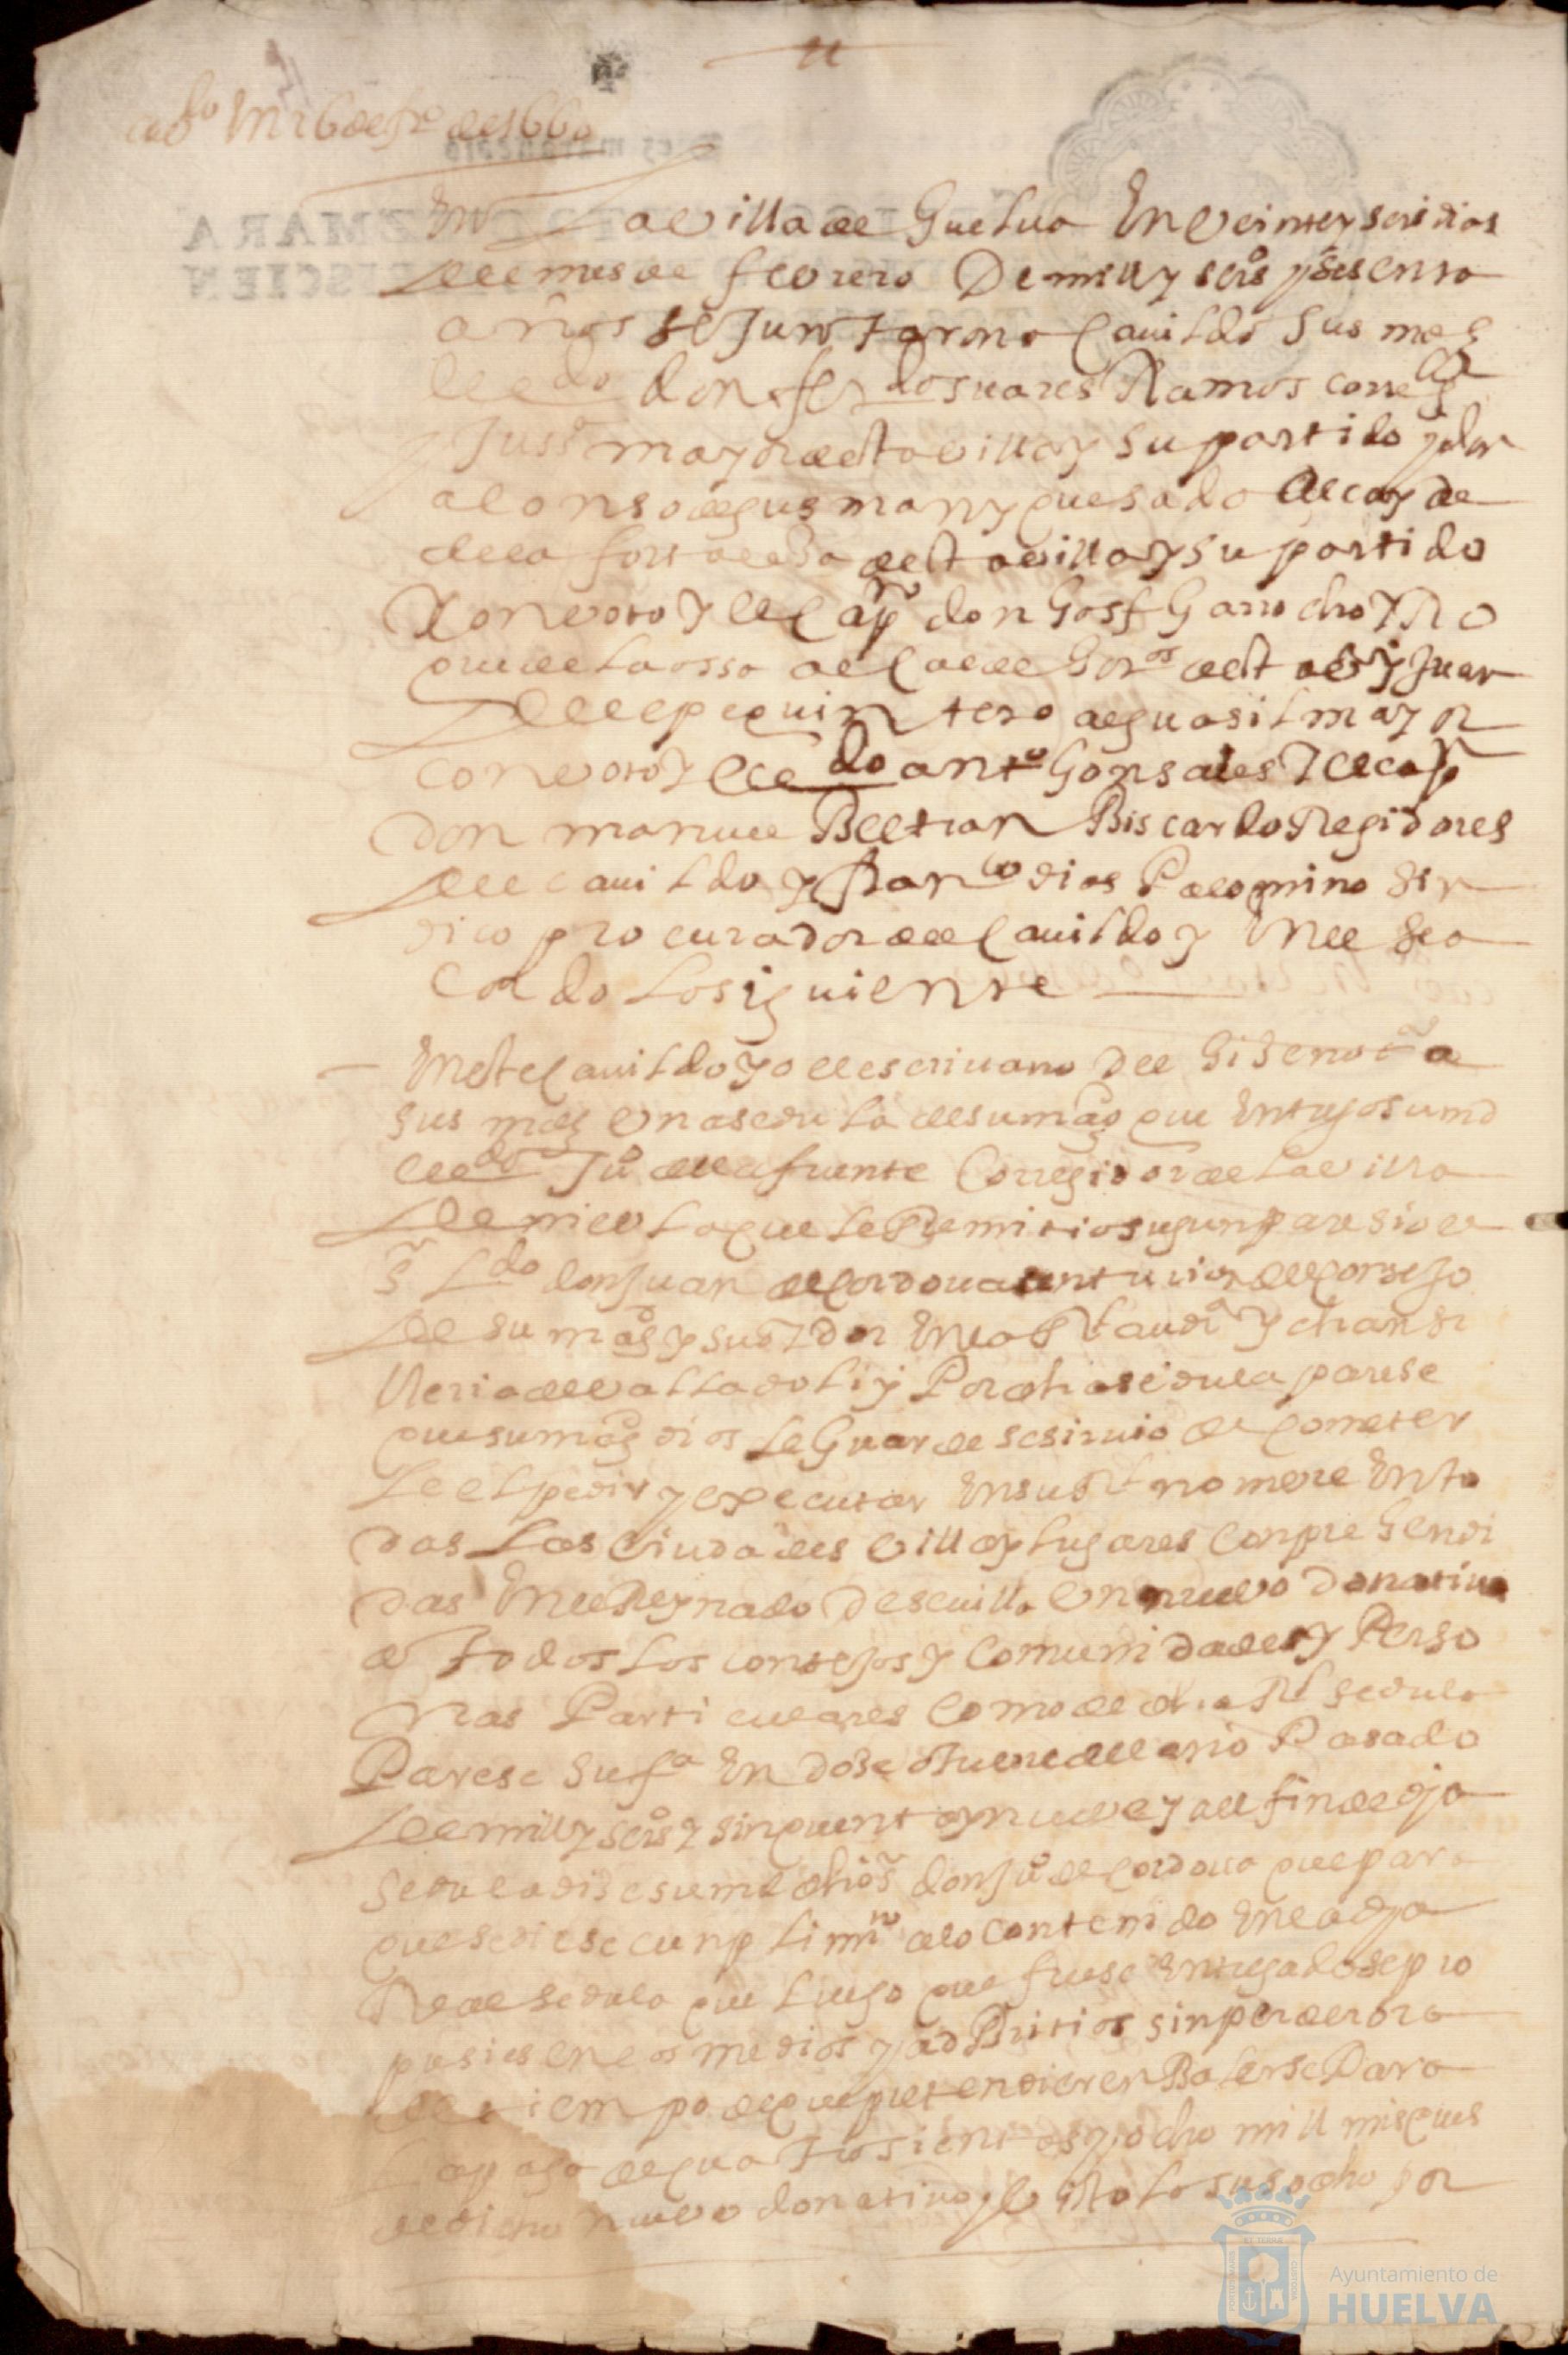 cabdo En 26 de fro de 1660
En La villa de Guelua En veinte y seis dias
del mes de febrero De mill y seisos y sesenta
años se Juntaron a Cauildo Sus mds
el ldo don ferdo suares Ramos correxor
y Jussa mayor de esta villa y su partido y don
alonso de gusman y quesada Alcayde
de la fortalesa de esta villa y su partido
Con voto y el Capn don Josf Garrocho y Ro
que de La ossa alCalde horos de esta va y Juan
delep e quintero alguasil mayor
con voto y el ldo anto Gonsales y el capn
don manuel Beltran Biscardo Regidores
del cauildo y franco dias Palomino Sin
dico procurador del Cauildo y En el Se a
Cordo Lo siguiente
En este Cauildo yo el escriuano del Hise notoria
a sus mds Una sedula de su magd que Entrego su md
el ldo Juo de la fuente Corregidor de La villa
de niebla que Le Remitio segun paresio el
Sr Ldo don Juan de Cordoua senturion del Consejo
de su magd y su oydor En la Rl audia y chansi
lleria de valladolid y Por dha sedula parese
que su magd dios Le Guarde se siruio de Cometer
Le el pedir y executar En su Rl nombre En to
das Las Ciudades villas y Lugares Conprehendi
das En el Reynado de seuilla Un nuebo donatiuo
a todos Los consejos y Comunidades y Perso
nas Particulares Como de dha Rl sedula
Parese Su fa En dose otubre del año Pasado
de mill y seisos y sinquenta y nuebe y al fin de dja
sedula dise su md dho Sr don Juo de Cordoua que para
que se diese cunplimto a lo contenido En la dja
Real sedula que Luego que fuese Entregado se pro
pusiesen los medios y adbitrios sin perder ora
de tiempo de que pretendieren Balerse Para
La paga de quatrosientos y ocho mill mrs que es
de dicho nuebo donatiuo y visto Lo susodho por
Ayuntamiento de
HUELVA